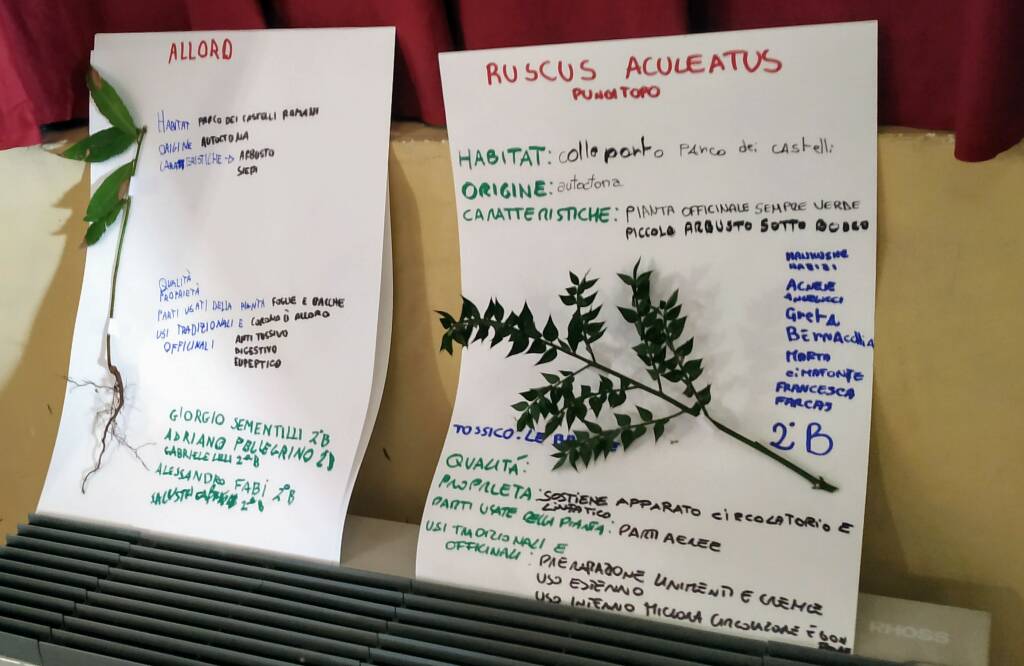 ALLORO
HABITAT PARCO DEI CASTELLI ROMANI
ORIGINE AUTOCTONA
ARBUSTO
SIEPI
QUALITÀ
PROPRIETÀ
PARTI USATI DELLA PIANTA FOGLIE E BACCHE
USI TRADIZIONALI E CORONA D'ALLORO
OFFICINALI ANTITOSSIVO
DIGESTIVO
EUPEPTICO
GIORGIO SEMENTILLI 2°B
ADRIANO PELLEGRINO 2°B
GABRIELE LELI 2°B
ALESSANDRO FABI 2°B
RUSCUS ACULEATUS
PUNGITOPO
HABITAT: colle ponto Parco dei castelli
ORIGINE: autoctona
CARATTERISTICHE: PIANTA OFFICINALE SEMPRE VERDE
PICCOLO ARBUSTO SOTTO BOSCO
HABIBI
AGNESE
ANGELUCCI
Greta
BERNACCHIA
MARTA
CIMATONTE
FRANCESCA
FARCAS
2°B
TOSSICO: LE
QUALITÁ:
PROPRIETÀ: SOSTIENE APPARATO CIRCOLATORIO E
LINFATICO
PARTI USATE DELLA PIANTA: PARTI AEREE
USI TRADIZIONALI E
OFFICINALI: PREPARAZIONE UNIMENTI E CREME
USO ESTERNO
USO INTERNO MIGLIORA CIRCOLAZIONE E
RHOSS